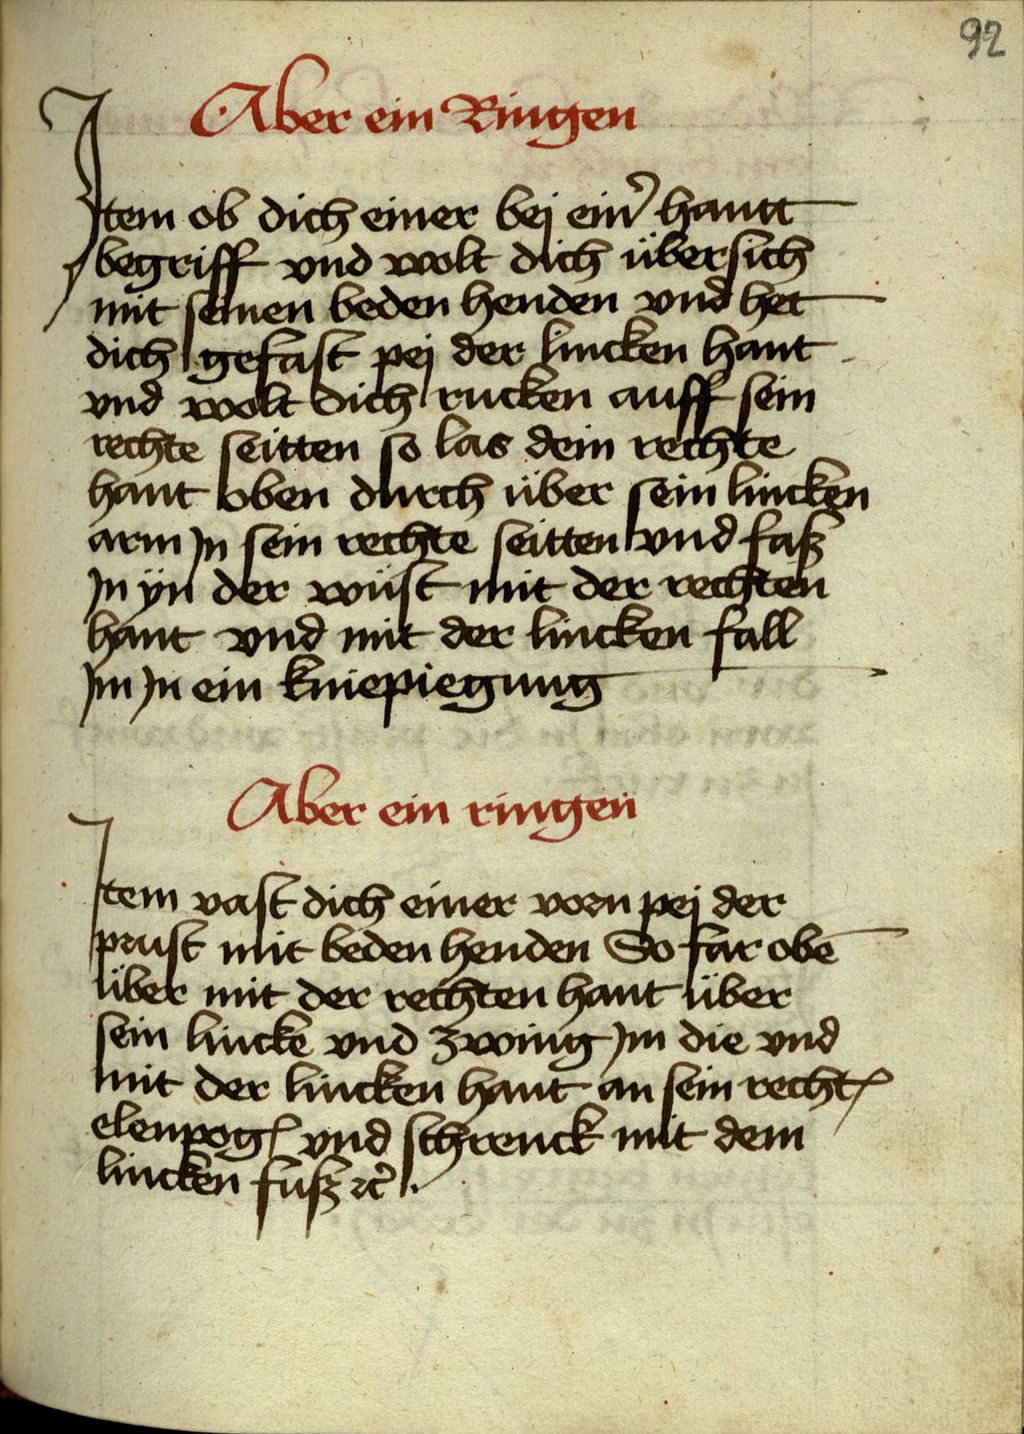 92
Aber ein Ringen
Item ob dich einer bej ein͛ hantt
begriff vnd wolt dich übersich
mit seinen beden henden vnd het
dich gefast pej der lincken hant
vnd wolt dich rucken auff sein
rechte seitten so las dein rechte
hant oben durch über sein lincken
arm Jn sein rechte seitten vnd faß
Jn ÿn der wüst mit der rechten
hant vnd mit der lincken fall
Jm Jn ein kniepiegung
Aber ein ringen
Item vast dich einer vorn pej der
prust mit beden henden So far obē
über mit der rechten hant über
sein lincke vnd zwing Jm die vnd
mit der lincken hant an sein rechtꝭ
elenpogꝭ vnd schrenck mit dem
lincken fuß ꝛc̃